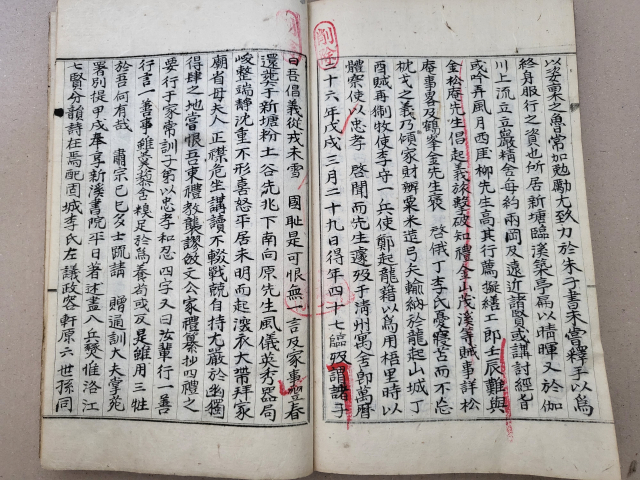 以姿禀之魯常加勉勵尤致力於朱子書未嘗釋手以爲
終身服行之資也所居新塘臨溪築亭扁以晴暉又於伽
川上流立立巖精舍每約兩岡及遠近諸賢或講討經旨
或吟弄風月西厓柳先生高其行薦擬繕工郎壬辰難與
金松庵先生倡起義旅擊破知禮金山茂溪等賊事詳松
庵事畧及鶴峯金先生褒 啓俄丁李氏憂寢苫而不忘
枕戈之義乃傾家財辦粟米造弓矢輸納於龍起山城丁
酉賊再制牧使李守一兵使鄭起龍藉以爲用梧里時以
體察使以忠孝 啓聞而先生遽歿于淸州寓舍卽萬曆
二十六年戊戌三月二十九日得年四十七臨歿謂諸子
曰吾倡義從戎未雪 國恥是可恨無一言及家事豐春
還葬于新塘粉土谷先兆下南向原先生風儀英秀器局
峻整端靜沈重不形喜怒平居未明而起深衣大帶拜家
廟省母夫人正襟危坐講讀不輟戰兢自持尤嚴於幽獨
得肆之地嘗恨吾東禮教襲謬 文公家禮纂抄四禮之
要行于家常訓子弟以忠孝和忍四字又曰汝輩行一善
行言一善事雖羹藜 糗足於爲養苟或反是雖用三牲
於吾何有哉 肅宗己巳多士疏請 贈通訓大夫掌苑
署別提甲戌奉享新溪書院平日著述盡入兵燹惟洛江
七賢分韻詩在焉配固城李氏左議政容軒原六世孫同